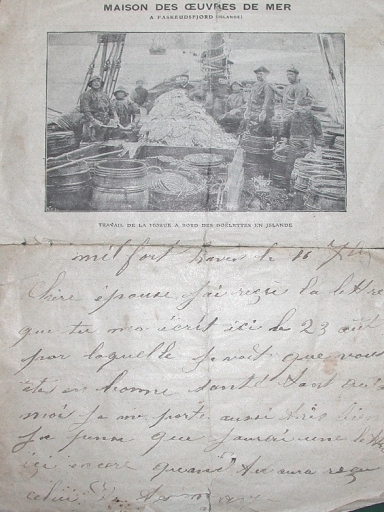 MAISON DES ŒUVRES DE MER
A FASKRUDSFJORD (ISLANDE)
TRAVAIL DE LA MORUE A BORD DES GOËLETTES EN ISLANDE
milfort haven le 16
Chère épouse J'ai reçu la lettre
que tu ma écrit ici le 23 aout
par laquelle Je voit que vous
ete en bonne santé tant qu'à
moi Je me porte aussi très bien
Je pense que J'aurai une lettre
ici encore quand tu aura reçu